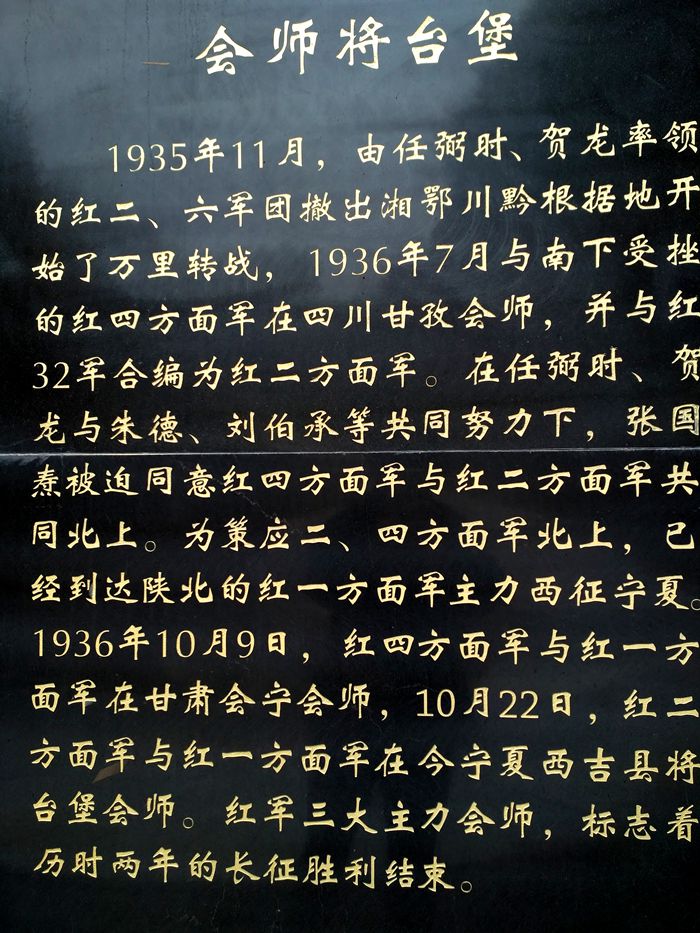 会师将台堡
1935年11月，由任弼时、贺龙率领
的红二、六军团撤出湘鄂川黔根据地开
始了万里转战，1936年7月与南下受挫
的红四方面军在四川甘孜会师，并与红
32军合编为红二方面军。在任弼时、贺
龙与朱德、刘伯承等共同努力下，张国
焘被迫同意红四方面军与红二方面军共
同北上。为策应二、四方面军北上，已
经到达陕北的红一方面军主力西征宁夏。
1936年10月9日，红四方面军与红一方
面军在甘肃会宁会师，10月22日，红二
方面军与红一方面军在今宁夏西吉县将
台堡会师。红军三大主力会师，标志着
历时两年的长征胜利结束。